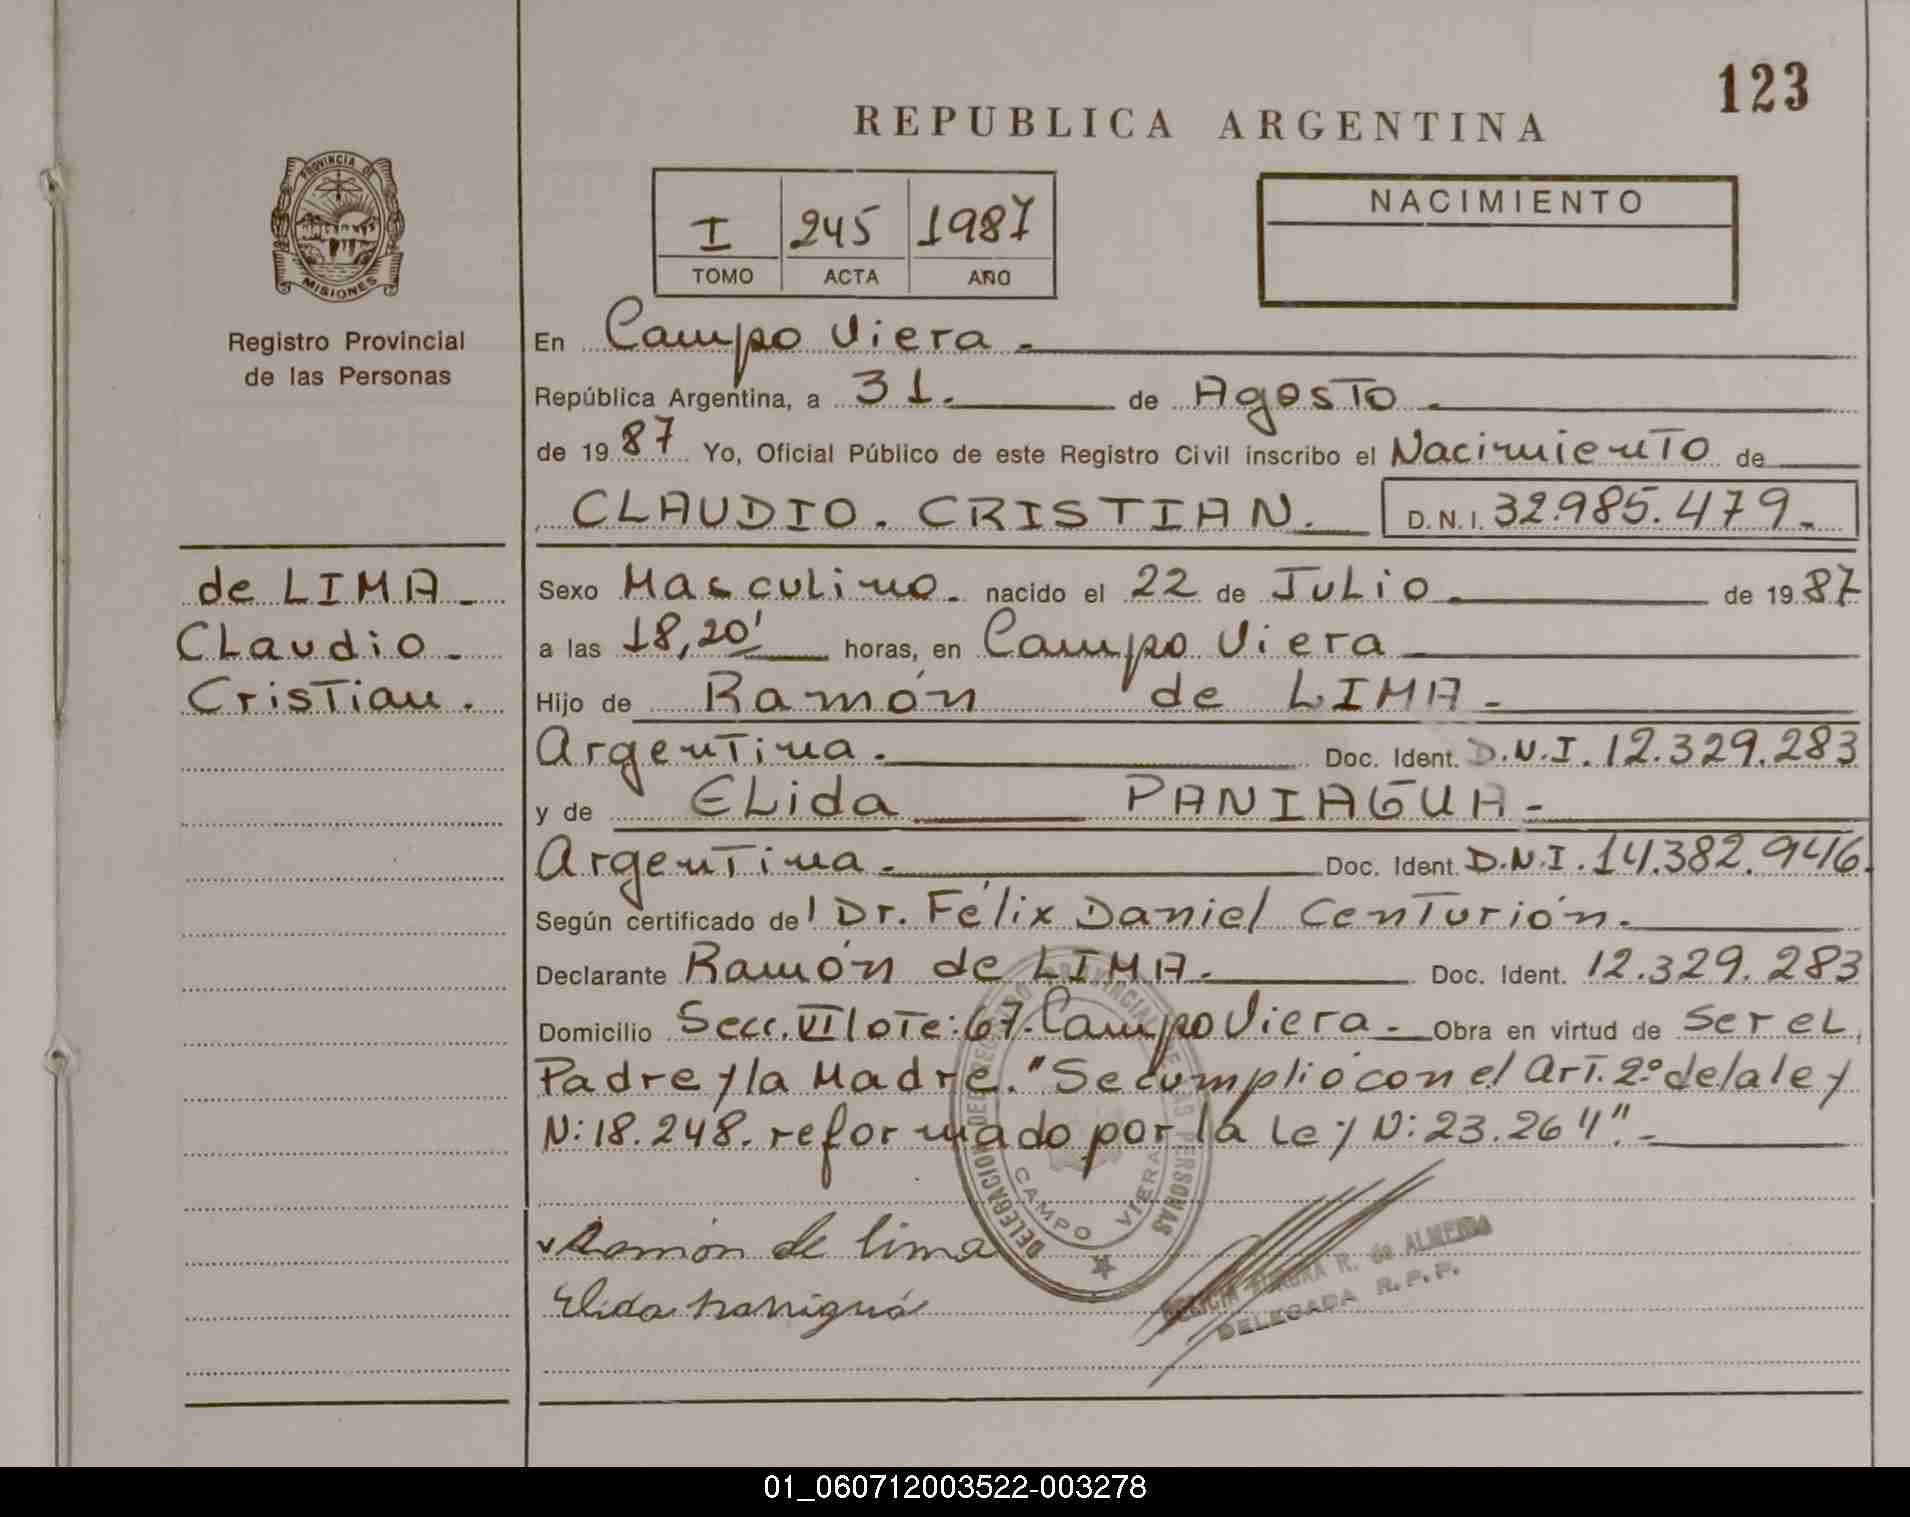 123
REPUBLICA ARGENTINA
PROVINCIA DE
MISIONES
Registro Provincial
de las Personas
I 245 1987
TOMO ACTA AÑO
NACIMIENTO
En Campo Viera.
República Argentina, a 31. de Agosto.
de 1987 Yo, Oficial Público de este Registro Civil inscribo el Nacimiento de
CLAUDIO. CRISTIAN. D.N.I. 32.985.479.
de LIMA
Claudio
Cristian.
Sexo Masculino. nacido el 22 de Julio. de 1987
a las 18,20' horas, en Campo Viera
Hijo de Ramón de LIMA.
Argentina. Doc. Ident. D.N.I. 12.329.283
y de ELida PANIAGUA.
Argentina. Doc. Ident. D.N.I. 14.382.946.
Según certificado del Dr. Félix Daniel Centurión.
Declarante Ramón de LIMA. Doc. Ident. 12.329.283
Domicilio Secc. VI lote: 67. Campo Viera. Obra en virtud de ser el
Padre y la Madre. "Se cumplió con el Art. 2º de la ley
N: 18.248. reformado por la ley N: 23.264".
DELEGACION DEL REGISTRO PROVINCIAL DE LAS PERSONAS
CAMPO VIERA
Ramón de lima
Elida Paniagua
R. de ALMEIDA
DELEGADA R.P.P.
01_060712003522-003278